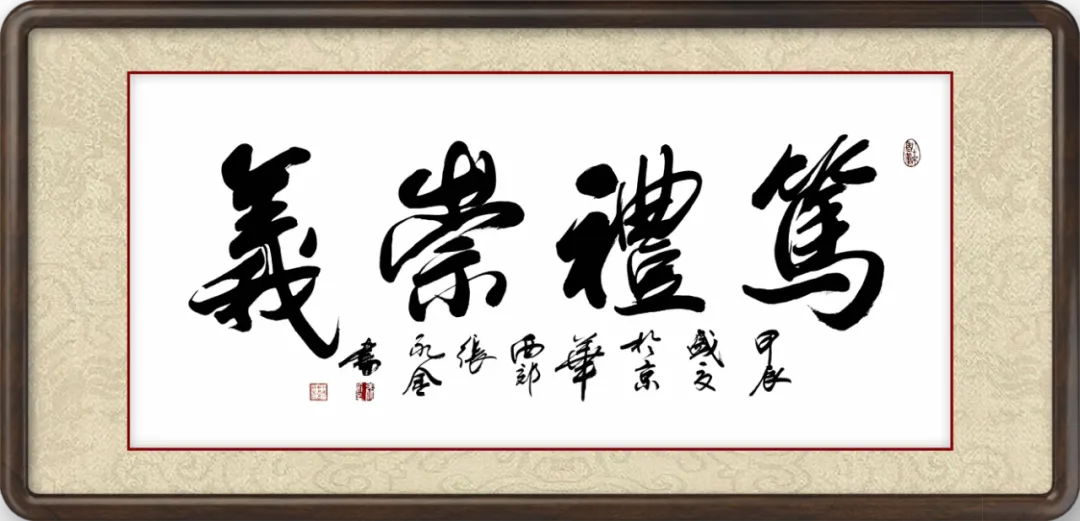 篤禮崇義
甲辰盛夏於京華西郊張永金書